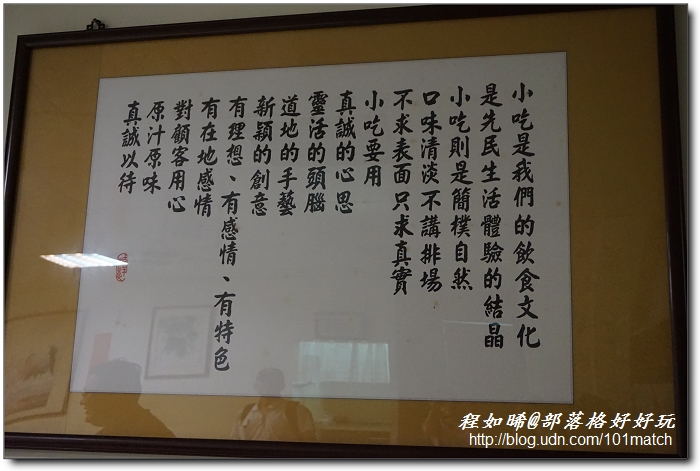 小吃是我們的飲食文化
是先民生活體驗的結晶
小吃則是簡樸自然
口味清淡不講排場
不求表面只求真實
小吃要用
真誠的心思
靈活的頭腦
道地的手藝
新穎的創意
有理想、有感情、有特色
有在地感情
對顧客用心
原汁原味
真誠以待
程如晞@部落格好好玩
http://blog.udn.com/101match